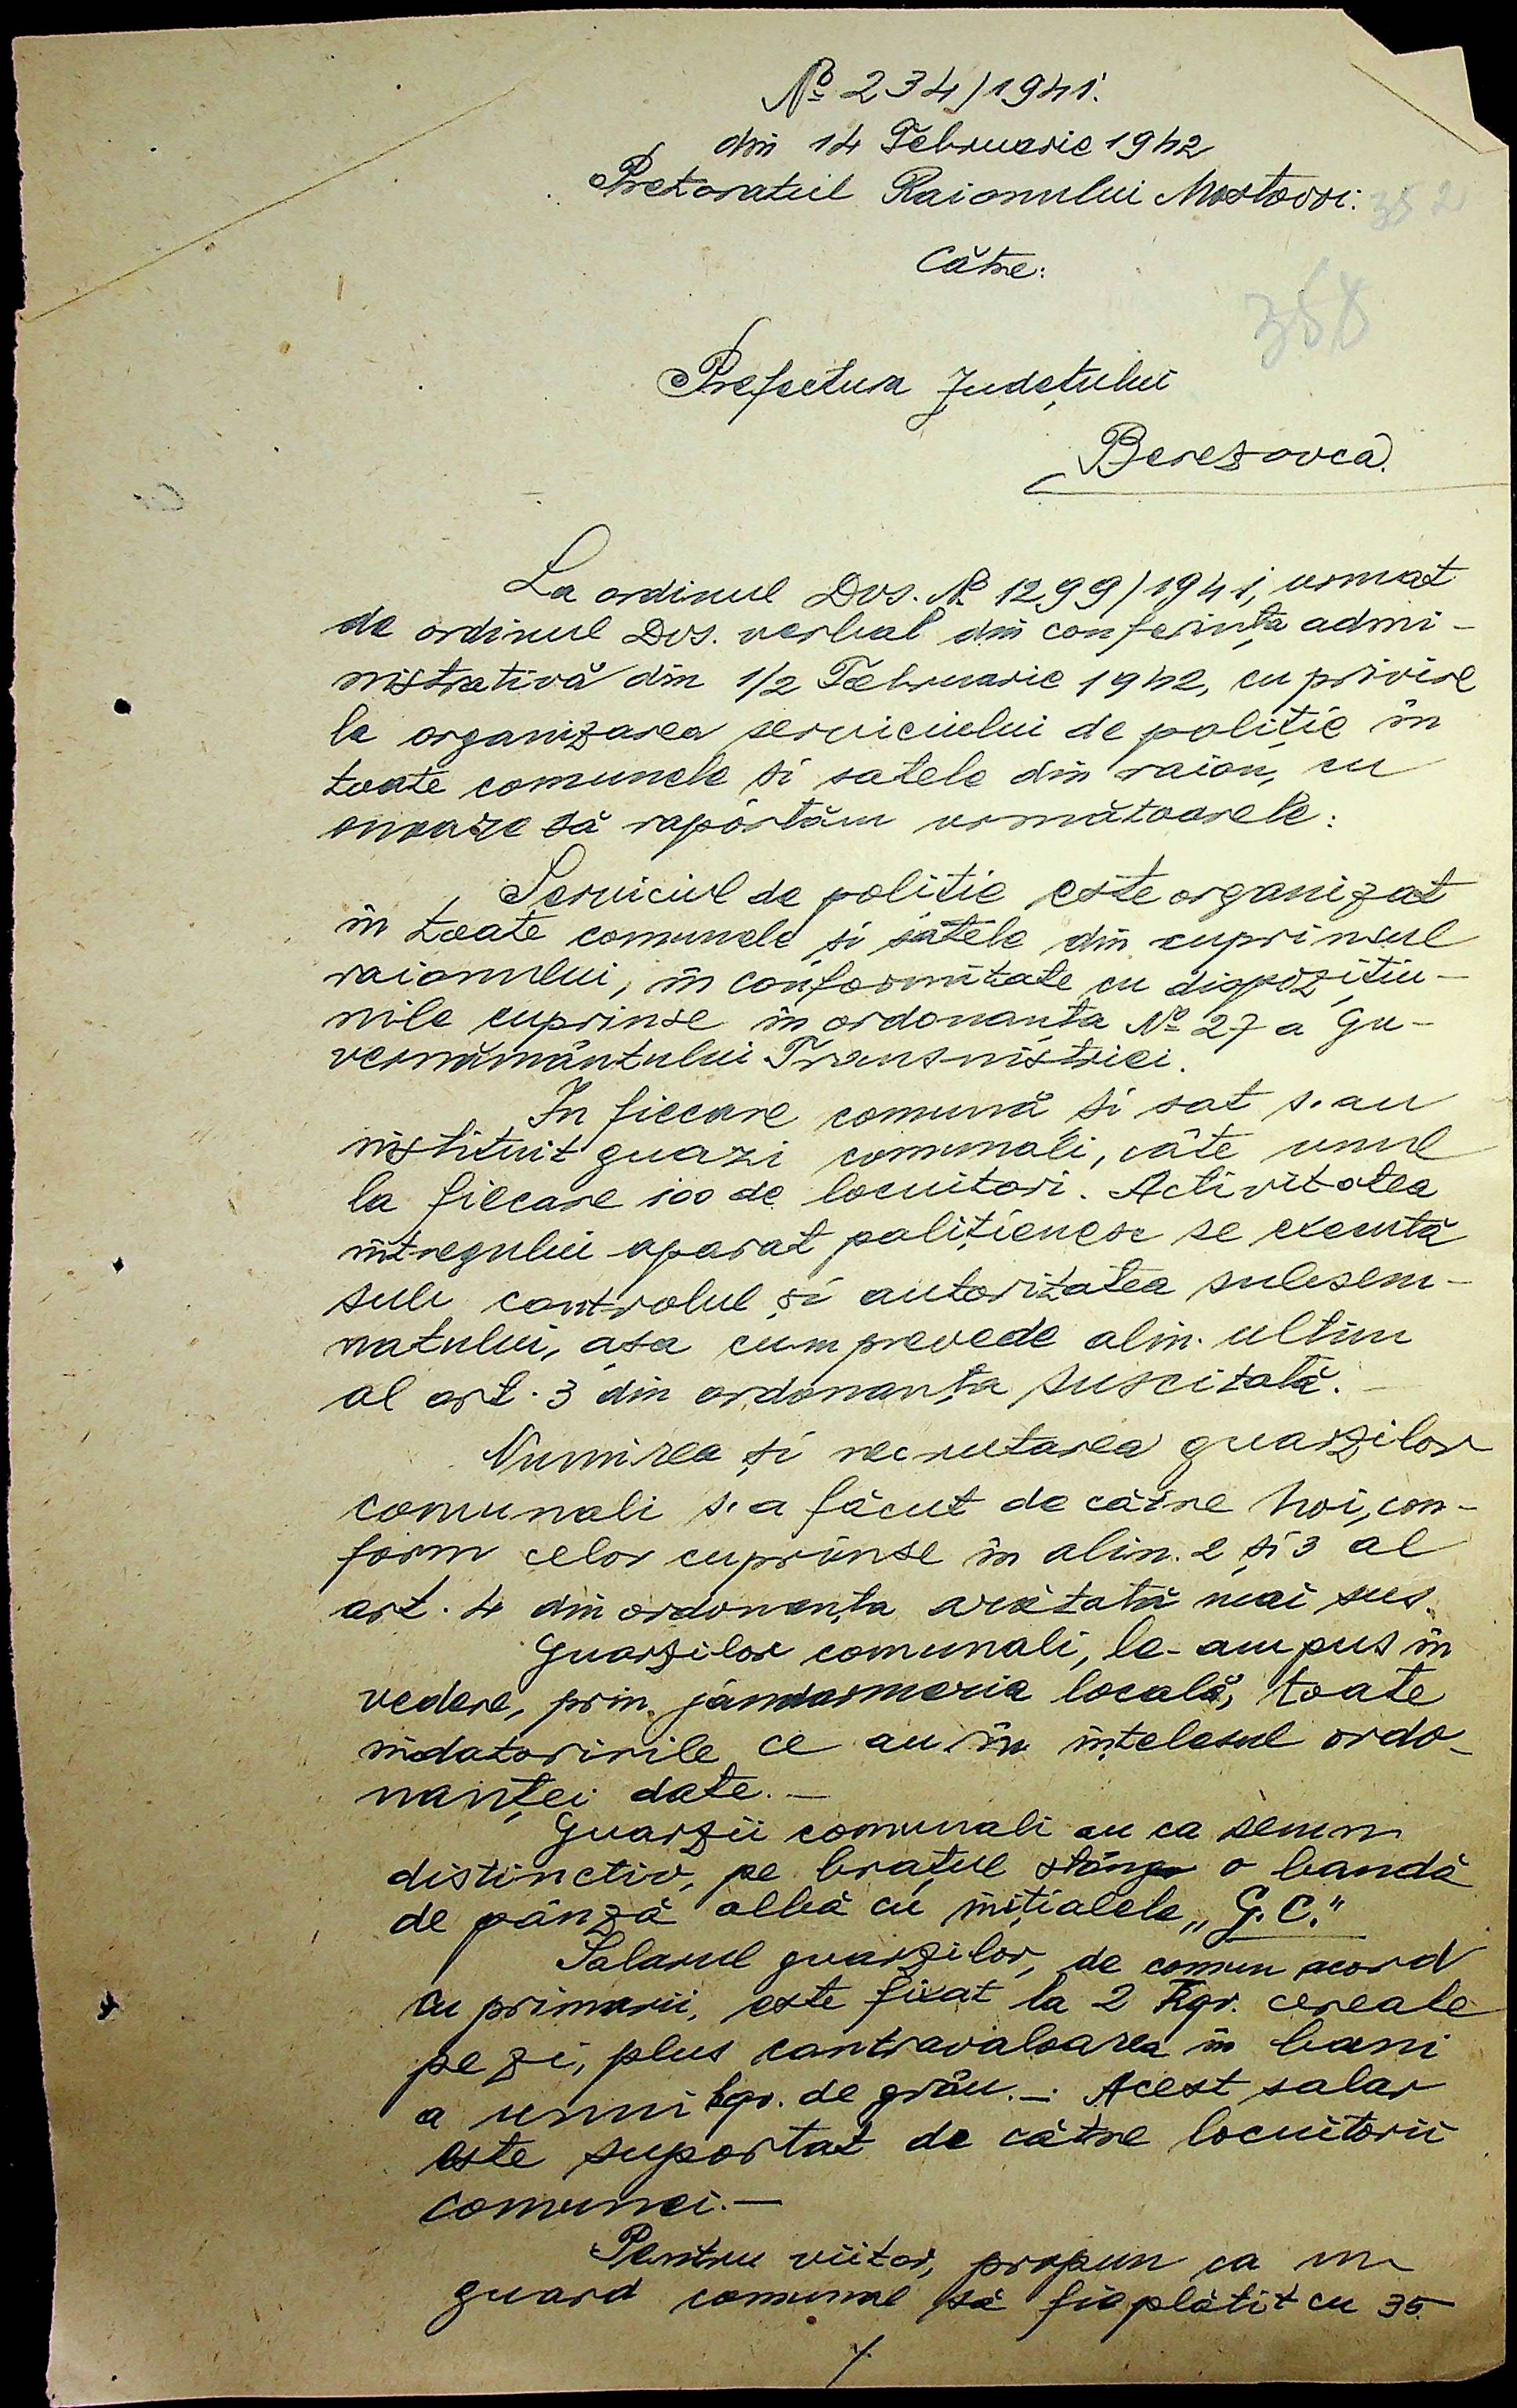 № 234/1941.
din 14 Februarie 1942
Pretoratul Raionului Mostovoi.
352
Către:
358
Prefectura Județului
Berezovca.
La ordinul Dvs. № 1299/1941, urmat
de ordinul Dvs. verbal din conferința admi-
nistrativă din 1/2 Februarie 1942, cu privire
la organizarea serviciului de poliție în
toate comunele și satele din raion, cu
onoare să raportăm următoarele:
Serviciul de poliție este organizat
în toate comunele și satele din cuprinsul
raionului, în conformitate cu dispozițiu-
nile cuprinse în ordonanța № 27 a Gu-
vernământului Transnistriei.
In fiecare comună și sat s'au
instituit guarzi comunali, câte unul
la fiecare 100 de locuitori. Activitatea
întregului aparat polițienesc se execută
sub controlul și autoritatea subsem-
natului, așa cum prevede alin. ultim
al art. 3 din ordonanța suscitată. -
Numirea și recrutarea guarzilor
comunali s'a făcut de către noi, con-
form celor cuprinse în alin. 2 și 3 al
art. 4 din ordonanța arătată mai sus.
Guarzilor comunali, le-am pus în
vedere, prin jandarmeria locală, toate
îndatoririle ce au în înțelesul ordo-
nanței date. -
Guarzii comunali au ca semn
distinctiv, pe brațul stâng o bandă
de pânză albă cu inițialele „G.C."
Salarul guarzilor, de comun acord
cu primarii, este fixat la 2 Kgr. cereale
pe zi, plus contravaloarea în bani
a unui kgr. de grâu. -. Acest salar
este suportat de către locuitorii
comunei. -
Pentru viitor, propun ca un
guard comunal să fie plătit cu 35
./.